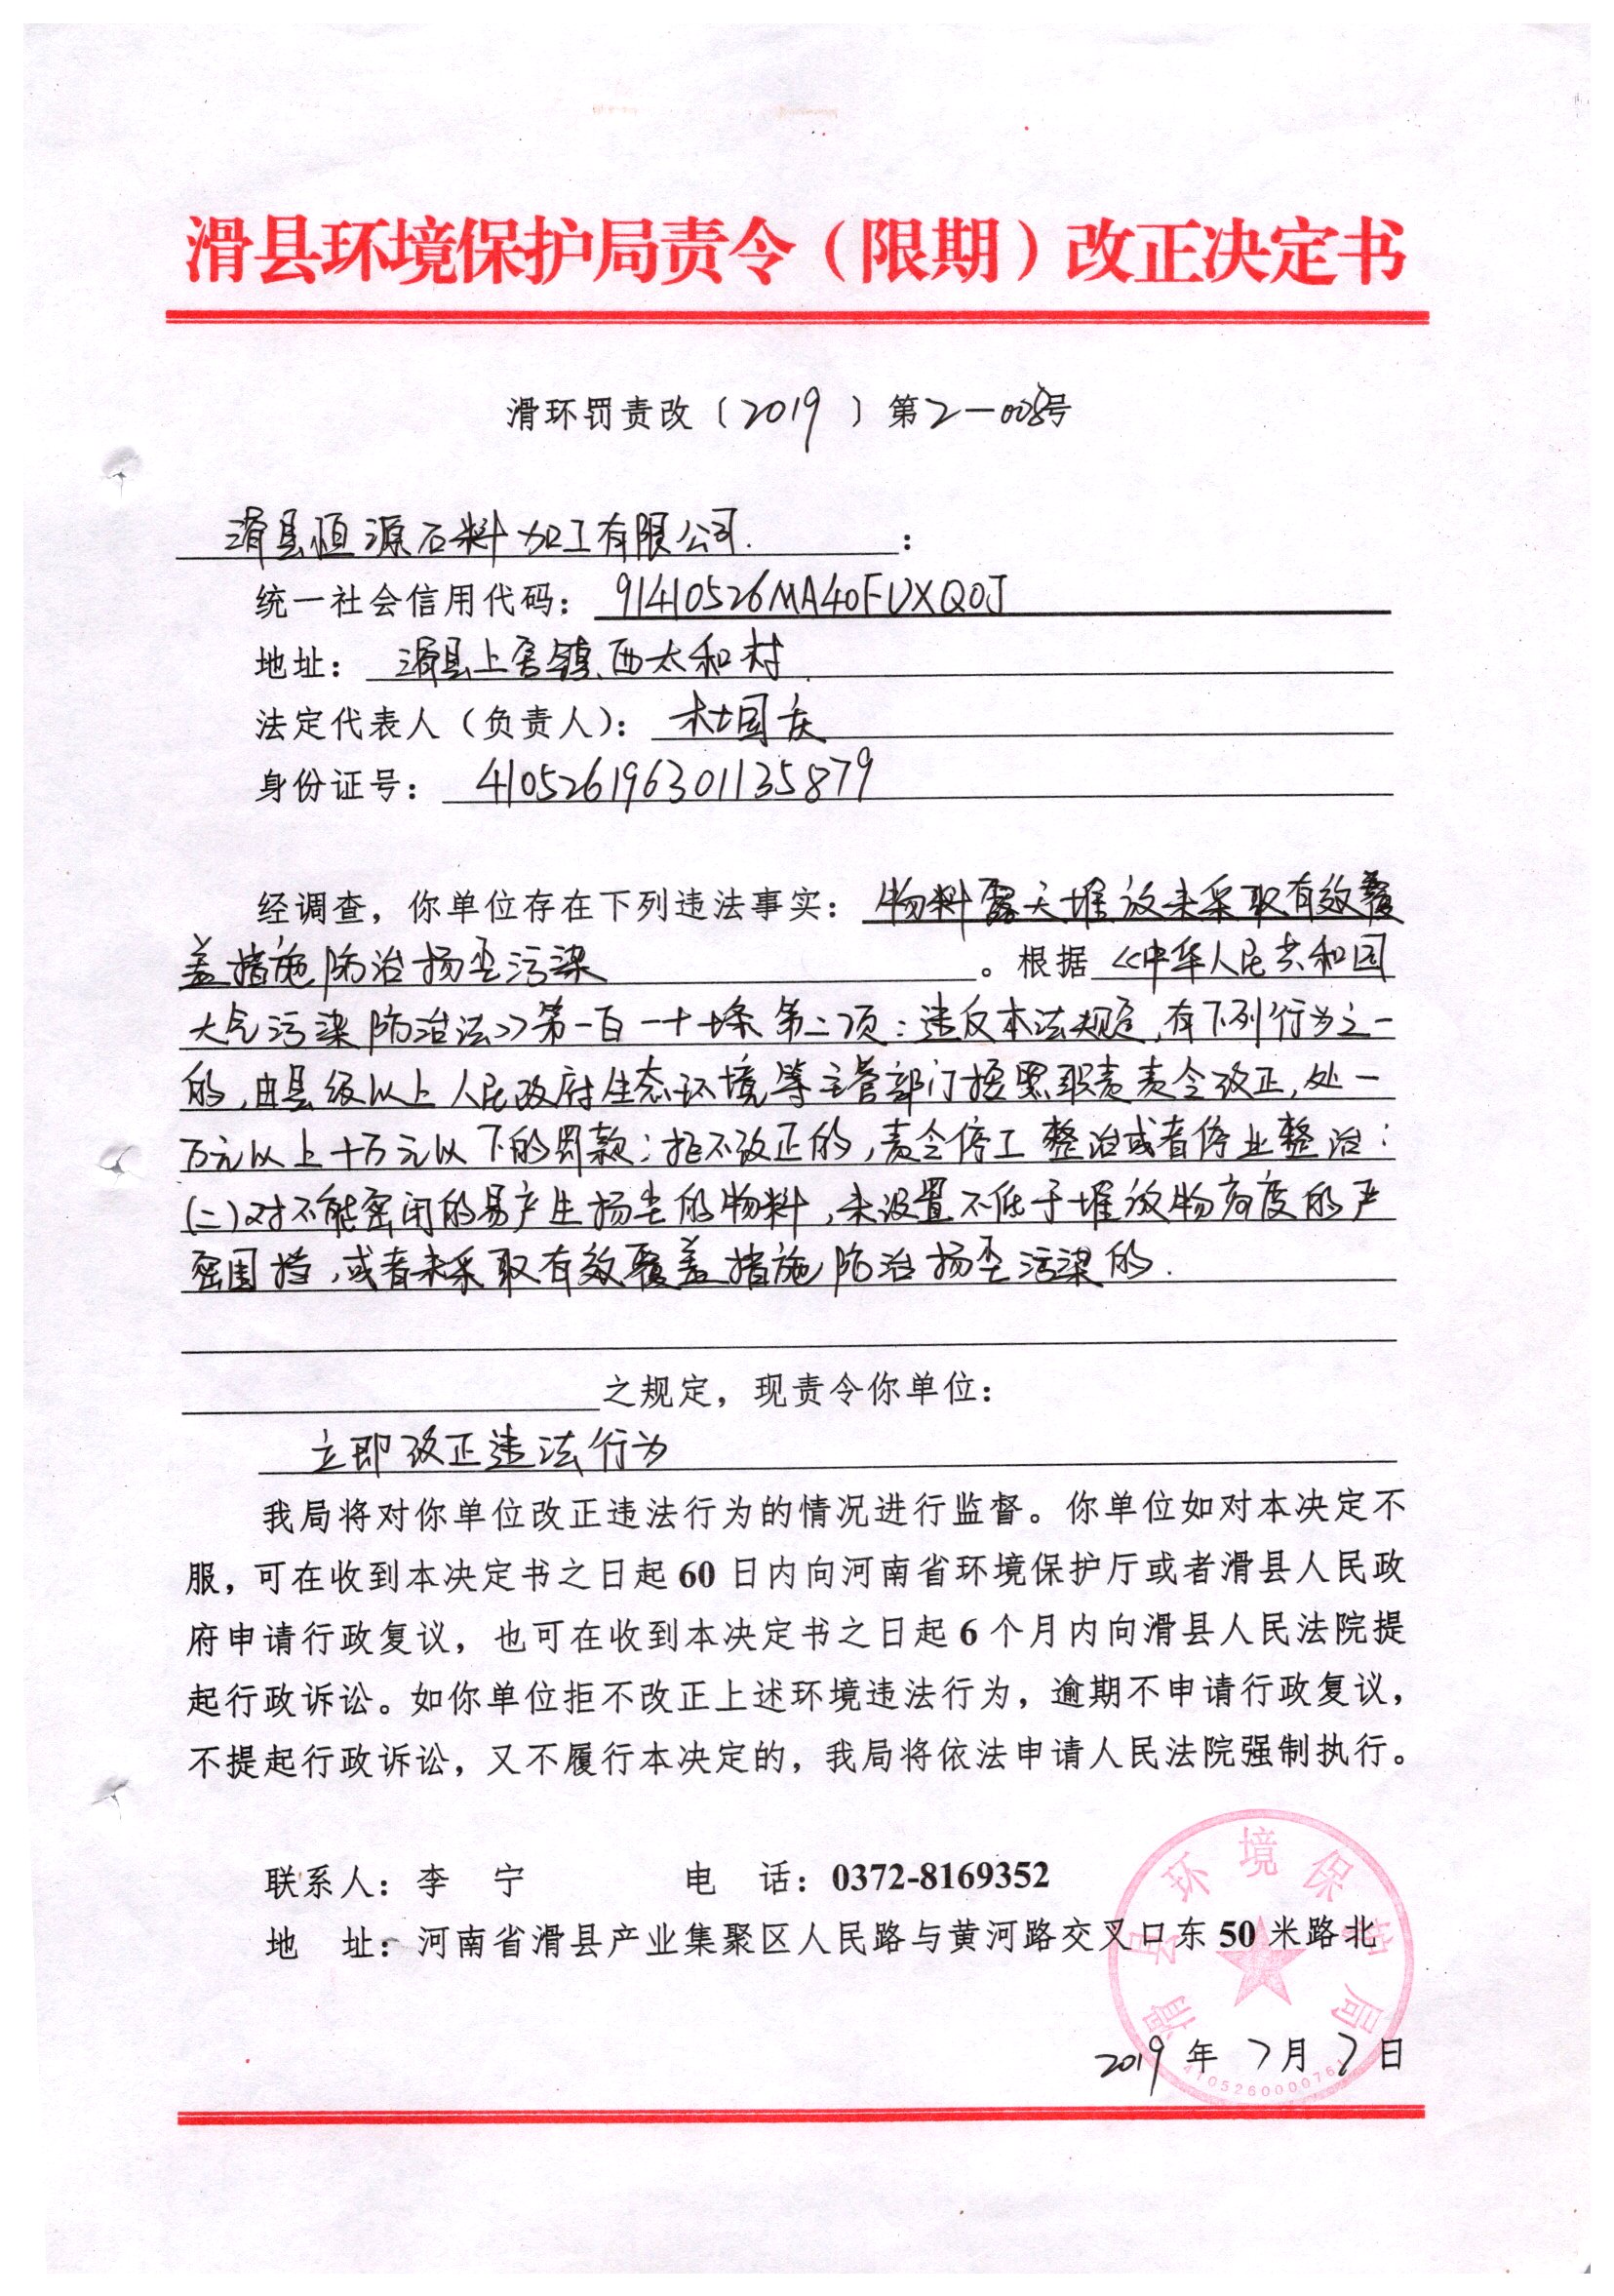 滑县环境保护局责令（限期）改正决定书
滑环罚责改〔2019〕第2-008号
滑县恒源石料加工有限公司：
统一社会信用代码：91410526MA40FUXQ0J
地址：滑县上官镇西太和村
法定代表人（负责人）：杜国庆
身份证号：410526196301135879
经调查，你单位存在下列违法事实：物料露天堆放未采取有效覆
盖措施防治扬尘污染。根据《中华人民共和国
大气污染防治法》第一百一十七条第二项：违反本法规定，有下列行为之一
的，由县级以上人民政府生态环境等主管部门按照职责责令改正，处一
万元以上十万元以下的罚款；拒不改正的，责令停工整治或者停业整治：
(二)对不能密闭的易产生扬尘的物料，未设置不低于堆放物高度的严
密围挡，或者未采取有效覆盖措施防治扬尘污染的.
之规定，现责令你单位：
立即改正违法行为
我局将对你单位改正违法行为的情况进行监督。你单位如对本决定不
服，可在收到本决定书之日起60日内向河南省环境保护厅或者滑县人民政
府申请行政复议，也可在收到本决定书之日起6个月内向滑县人民法院提
起行政诉讼。如你单位拒不改正上述环境违法行为，逾期不申请行政复议，
不提起行政诉讼，又不履行本决定的，我局将依法申请人民法院强制执行。
联系人：李 宁 电 话：0372-8169352
地 址：河南省滑县产业集聚区人民路与黄河路交叉口东50米路北
滑县环境保护局
2019年7月7日